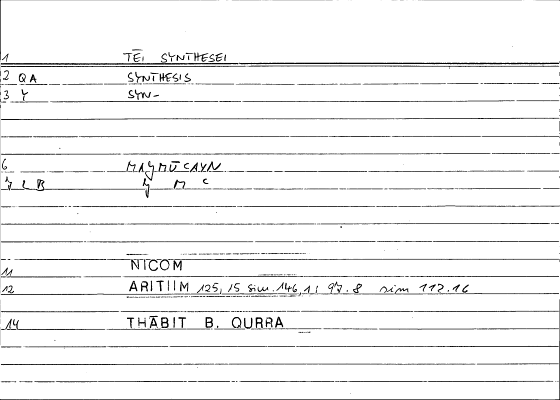 1 TĒI SYNTHESEI
2 QA SYNTHESIS
3 Y SYN-
6 MAJMŪCAYN
7 LB J M C
11 NICOM
12 ARITIIM 125,15 sim. 146,1; 97.8 sim 112.16
14 THĀBIT B. QURRA